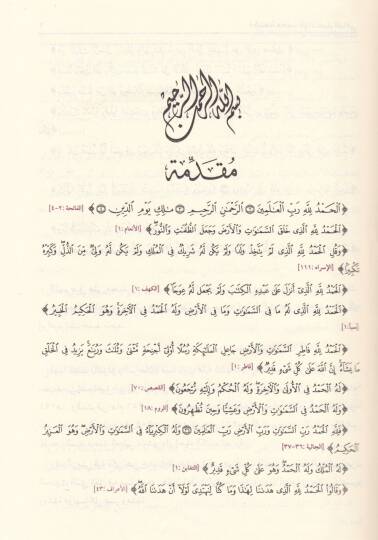 بسم الله الرحمن الرحيم
مُقَدِّمَة
﴿الْحَمْدُ لِلَّهِ رَبِّ الْعَالَمِينَ ۝ الرَّحْمَنِ الرَّحِيمِ ۝ مَالِكِ يَوْمِ الدِّينِ ۝﴾ [الفاتحة: ٢-٤]
﴿الْحَمْدُ لِلَّهِ الَّذِي خَلَقَ السَّمَاوَاتِ وَالْأَرْضَ وَجَعَلَ الظُّلُمَاتِ وَالنُّورَ﴾ [الأنعام: ١]
﴿وَقُلِ الْحَمْدُ لِلَّهِ الَّذِي لَمْ يَتَّخِذْ وَلَدًا وَلَمْ يَكُنْ لَهُ شَرِيكٌ فِي الْمُلْكِ وَلَمْ يَكُنْ لَهُ وَلِيٌّ مِنَ الذُّلِّ وَكَبِّرْهُ
تَكْبِيرًا﴾ [الإسراء: ١١١]
﴿الْحَمْدُ لِلَّهِ الَّذِي أَنْزَلَ عَلَى عَبْدِهِ الْكِتَابَ وَلَمْ يَجْعَلْ لَهُ عِوَجًا﴾ [الكهف: ١]
﴿الْحَمْدُ لِلَّهِ الَّذِي لَهُ مَا فِي السَّمَاوَاتِ وَمَا فِي الْأَرْضِ وَلَهُ الْحَمْدُ فِي الْآخِرَةِ وَهُوَ الْحَكِيمُ الْخَبِيرُ﴾
[سبأ: ١]
﴿الْحَمْدُ لِلَّهِ فَاطِرِ السَّمَاوَاتِ وَالْأَرْضِ جَاعِلِ الْمَلَائِكَةِ رُسُلًا أُولِي أَجْنِحَةٍ مَثْنَى وَثُلَاثَ وَرُبَاعَ يَزِيدُ فِي الْخَلْقِ
مَا يَشَاءُ إِنَّ اللَّهَ عَلَى كُلِّ شَيْءٍ قَدِيرٌ﴾ [فاطر: ١]
﴿لَهُ الْحَمْدُ فِي الْأُولَى وَالْآخِرَةِ وَلَهُ الْحُكْمُ وَإِلَيْهِ تُرْجَعُونَ﴾ [القصص: ٧٠]
﴿وَلَهُ الْحَمْدُ فِي السَّمَاوَاتِ وَالْأَرْضِ وَعَشِيًّا وَحِينَ تُظْهِرُونَ﴾ [الروم: ١٨]
﴿فَلِلَّهِ الْحَمْدُ رَبِّ السَّمَاوَاتِ وَرَبِّ الْأَرْضِ رَبِّ الْعَالَمِينَ ۝ وَلَهُ الْكِبْرِيَاءُ فِي السَّمَاوَاتِ وَالْأَرْضِ وَهُوَ الْعَزِيزُ
الْحَكِيمُ﴾ [الجاثية: ٣٦-٣٧]
﴿لَهُ الْمُلْكُ وَلَهُ الْحَمْدُ وَهُوَ عَلَى كُلِّ شَيْءٍ قَدِيرٌ﴾ [التغابن: ١]
﴿وَقَالُوا الْحَمْدُ لِلَّهِ الَّذِي هَدَانَا لِهَذَا وَمَا كُنَّا لِنَهْتَدِيَ لَوْلَا أَنْ هَدَانَا اللَّهُ﴾ [الأعراف: ٤٣]